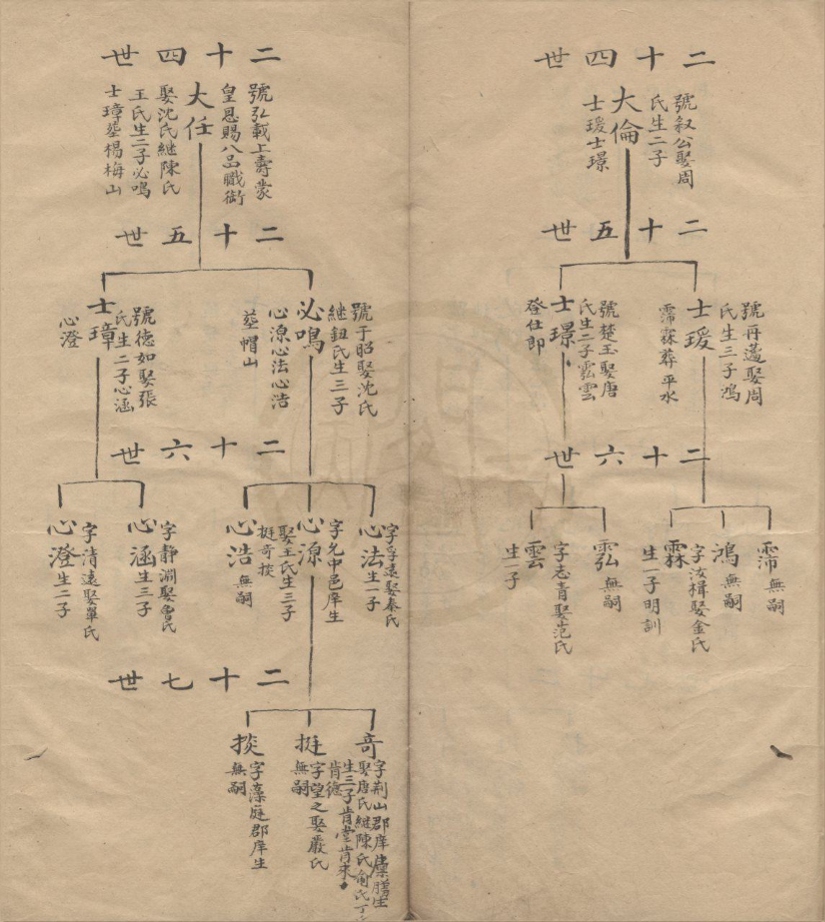 二十四世
大倫
號叙公娶周
氏生二子
士瑗士璟
二十五世
士瑗
號再蘧娶周
氏生三子鴻
霈霖葬平水
士璟
號楚玉娶唐
氏生二子雲
登仕郎
二十六世
霈
無嗣
鴻
無嗣
霖
字汝楫娶金氏
生一子明訓
無嗣
雲
字志青娶范氏
生一子
二十四世
大任
號弘載上壽蒙
皇恩賜八品職銜
娶沈氏繼陳氏
王氏生二子必鳴
士璋葬楊梅山
二十五世
必鳴
號于昭娶沈氏
繼鈕氏生三子
心源心法心浩
葬帽山
士璋
號德如娶張
氏生二子心涵
心澄
二十六世
心法
字孚遠娶秦氏
生一子
心源
字允中邑庠生
娶王氏生三子
挺奇掞
心浩
無嗣
心涵
字靜淵娶魯氏
生三子
心澄
字清遠娶單氏
生二子
二十七世
奇
字荆山郡庠生
娶唐氏繼陳氏俞氏丁氏
生三子肯堂肯來
肯德
挺
字望之娶嚴氏
無嗣
掞
字藻庭郡庠生
無嗣